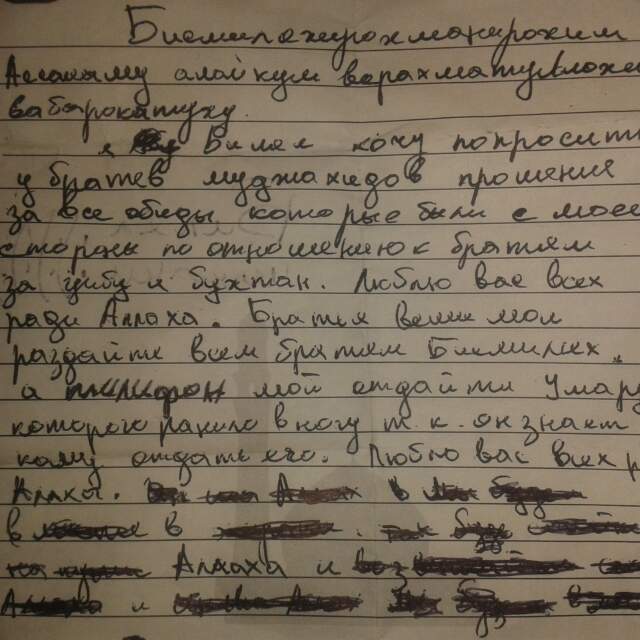 Бисмилахирохманирохим
Ассаламу алайкум варахматуллохи
вабарокатуху.
я Билел хочу попросить
у братев муджахидов прошения
за все обиды которые были с моей
стороны по отношению к братям
за гибу и бухтан. Люблю вас всех
ради Аллаха. Братья вещи мои
раздайте всем братям Бисмилях.
а тилифон мой отдайти Умару
которого ранило в ногу т.к. он знает
кому отдать его. Люблю вас всех р
Аллаха. в
в в
Аллаха и
и